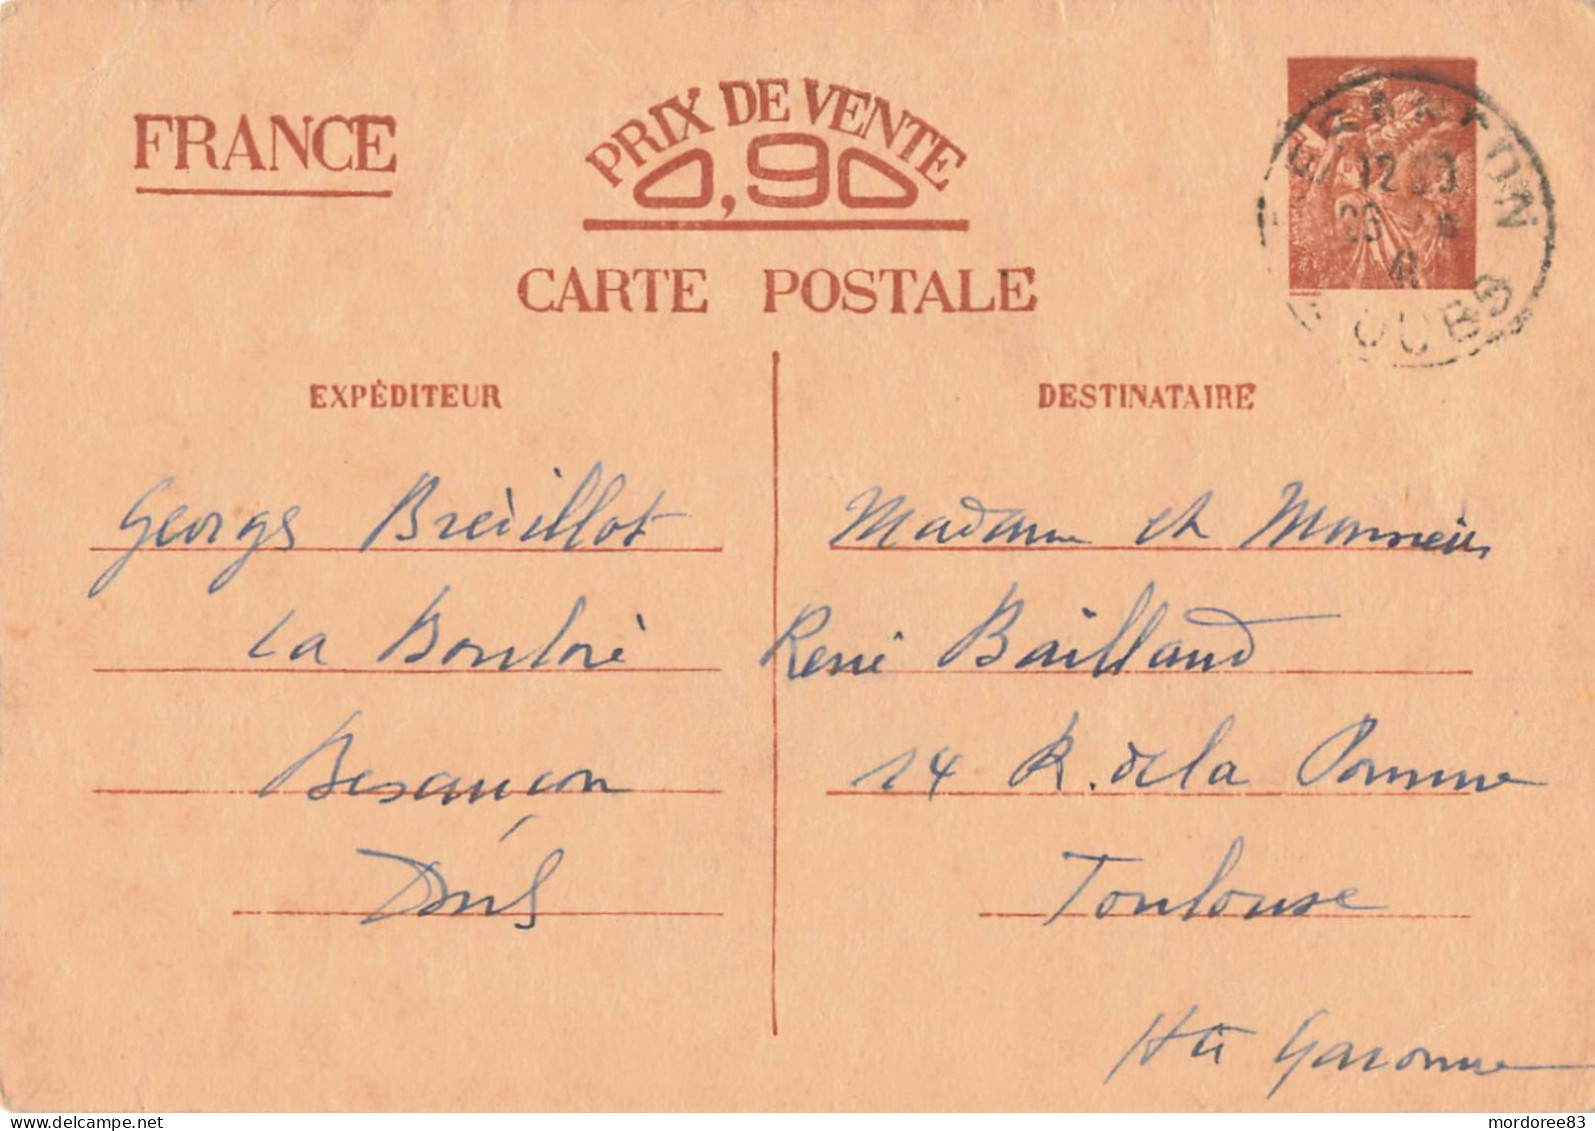 FRANCE
PRIX DE VENTE
0,90
CARTE POSTALE
12
41
DOUBS
EXPÉDITEUR
Georges Bréillot
La Bouloie
Besançon
Doubs
DESTINATAIRE
Madame et Monsieur
René Baillaud
14 R. de la Pomme
Toulouse
Hte Garonne
www.delcampe.net
mordoree83